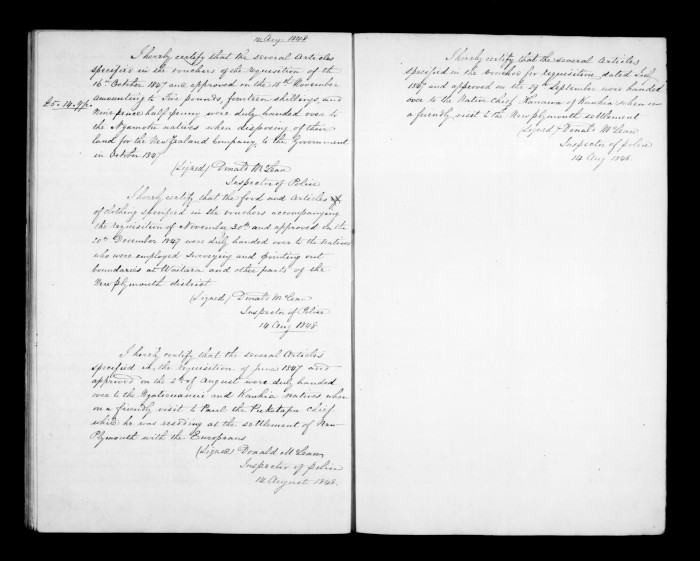 14 Aug. 1848
I hereby certify that the several Articles
specified in the vouchers of the requisition of the
16th October 1847 and approved on the 11th November
£5.14.9½. amounting to Five pounds, fourteen shillings, and
Nine pence half penny were duly handed over to
the natives when disposing of their
land for the New Zealand Company, to the Government
in October 1847
(Signed) Donald McLean
Inspector of Police
I hereby certify that the food and Articles
of clothing specified in the vouchers accompanying
the requisition of November 20th and approved on the
20th December 1847 were duly handed over to the Natives
who were employed surveying and pointing out
boundaries at Waitara and other parts of the
New Plymouth district
(Signed) Donald McLean
Inspector of Police
14 Aug 1848
I hereby certify that the several Articles
specified in the requisition of June 1847 and
approved on the 2nd of August were duly handed
over to the Ngatimaniu and Kawhia natives when
on a friendly visit to Paul the Puketapu chief
while he was residing at the settlement of New
Plymouth with the Europeans
(Signed) Donald McLean
Inspector of police
14 August 1848.
I hereby certify that the several Articles
specified in the voucher for requisition, dated July
1847 and approved on the 29th September were handed
over to the Native Chief of Kawhia when on
a friendly visit to the New plymouth settlement
(Signed) Donald McLean
Inspector of police
14 Aug 1848.